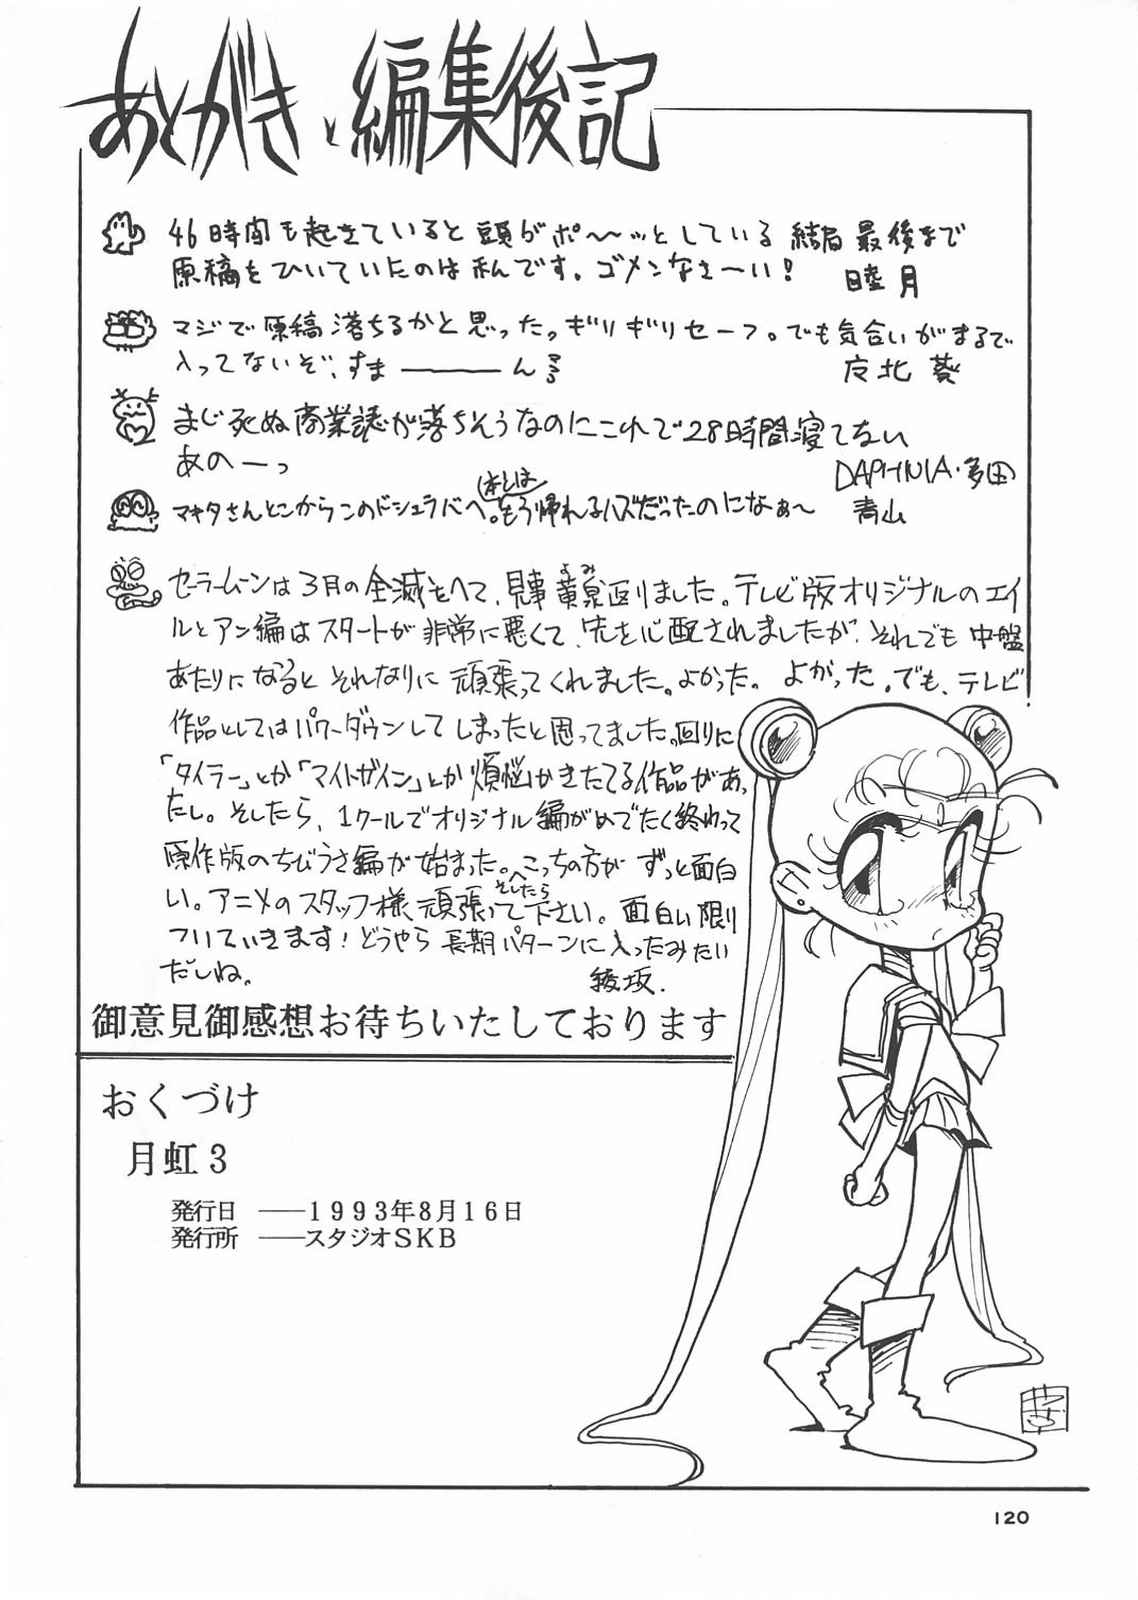 あとがきと編集後記
46時間も起きていると頭がポ〜ッとしている 結局 最後まで
原稿をひいていたのは私んです。ゴメンなさ〜い!
睦月
マジで原稿落ちるかと思った。ギリギリセーフ。でも気合いがまるで
入ってないぞ、すまーーーん
友北 葵
まじ死ぬ商業誌が落ちそうなのにこれで28時間寝てない
あのーっ
DAPHNIA・多田
マキタさんとこからこのドシュラバへ。本とはもう帰れるハズだったのになぁ〜
青山
セーラームーンは3月の全滅をへて、見事 黄泉返りました。テレビ版オリジナルのエイ
よみ
ルとアン編はスタートが非常に悪くて、先を心配されましたが、それでも中盤
あたりになるとそれなりに頑張ってくれました。よかった。よかった。でも、テレビ
作品としてはパワーダウンしてしまったと思ってました。回りに
「タイラー」とか「マイトガイン」とか煩悩かきたてる作品があっ
たし。そしたら、1クールでオリジナル編がめでたく終わって
原作版のちびうさ編が始まった。こっちの方がずっと面白
い。アニメのスタッフ様、頑張って下さい。そしたら面白い限り
ついていきます!どうやら長期パターンに入ったみたい
だしね。
綾坂.
御意見御感想お待ちいたしております
おくづけ
月虹3
発行日 ――1993年8月16日
発行所 ――スタジオSKB
120